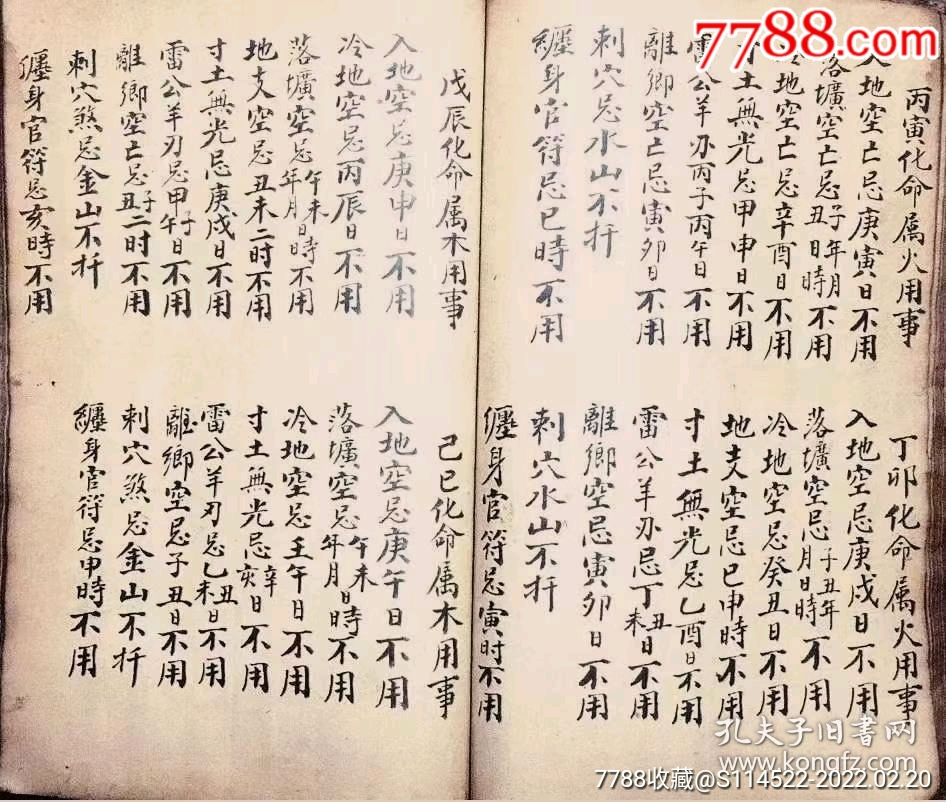 7788.com
丙寅化命属火用事
入地空亡忌庚寅日不用
落壙空亡忌子丑年月日時不用
冷地空亡忌辛酉日不用
寸土無光忌甲申日不用
雷公羊刃丙子丙午日不用
離鄉空亡忌寅卯日不用
刺穴忌水山不扦
纏身官符忌巳時不用
丁卯化命属火用事
入地空忌庚戌日不用
落壙空忌子丑年月日時不用
冷地空忌癸丑日不用
地支空忌巳申時不用
寸土無光忌乙酉日不用
雷公羊刃忌丁丑未日不用
離鄉空忌寅卯日不用
刺穴水山不扦
纏身官符忌寅时不用
戊辰化命属木用事
入地空忌庚申日不用
冷地空忌丙辰日不用
落壙空忌午未年月日時不用
地支空忌丑未二時不用
寸土無光忌庚戌日不用
雷公羊刃忌甲子午日不用
離鄉空亡忌子丑二时不用
刺穴煞忌金山不扦
纏身官符忌亥時不用
己巳化命属木用事
入地空忌庚午日不用
落壙空忌午未年月日時不用
冷地空忌壬午日不用
寸土無光忌辛亥日不用
雷公羊刃忌乙丑未日不用
離鄉空忌子丑日不用
刺穴煞忌金山不扦
纏身官符忌申時不用
孔夫子旧书网
www.kongfz.com
7788收藏@S114522-2022.02.20